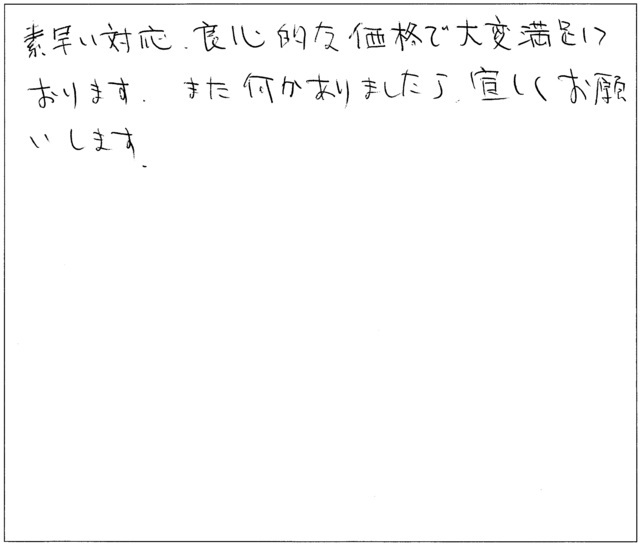 素早い対応、良心的な価格で大変満足して
おります。また何かありましたら、宜しくお願
いします。